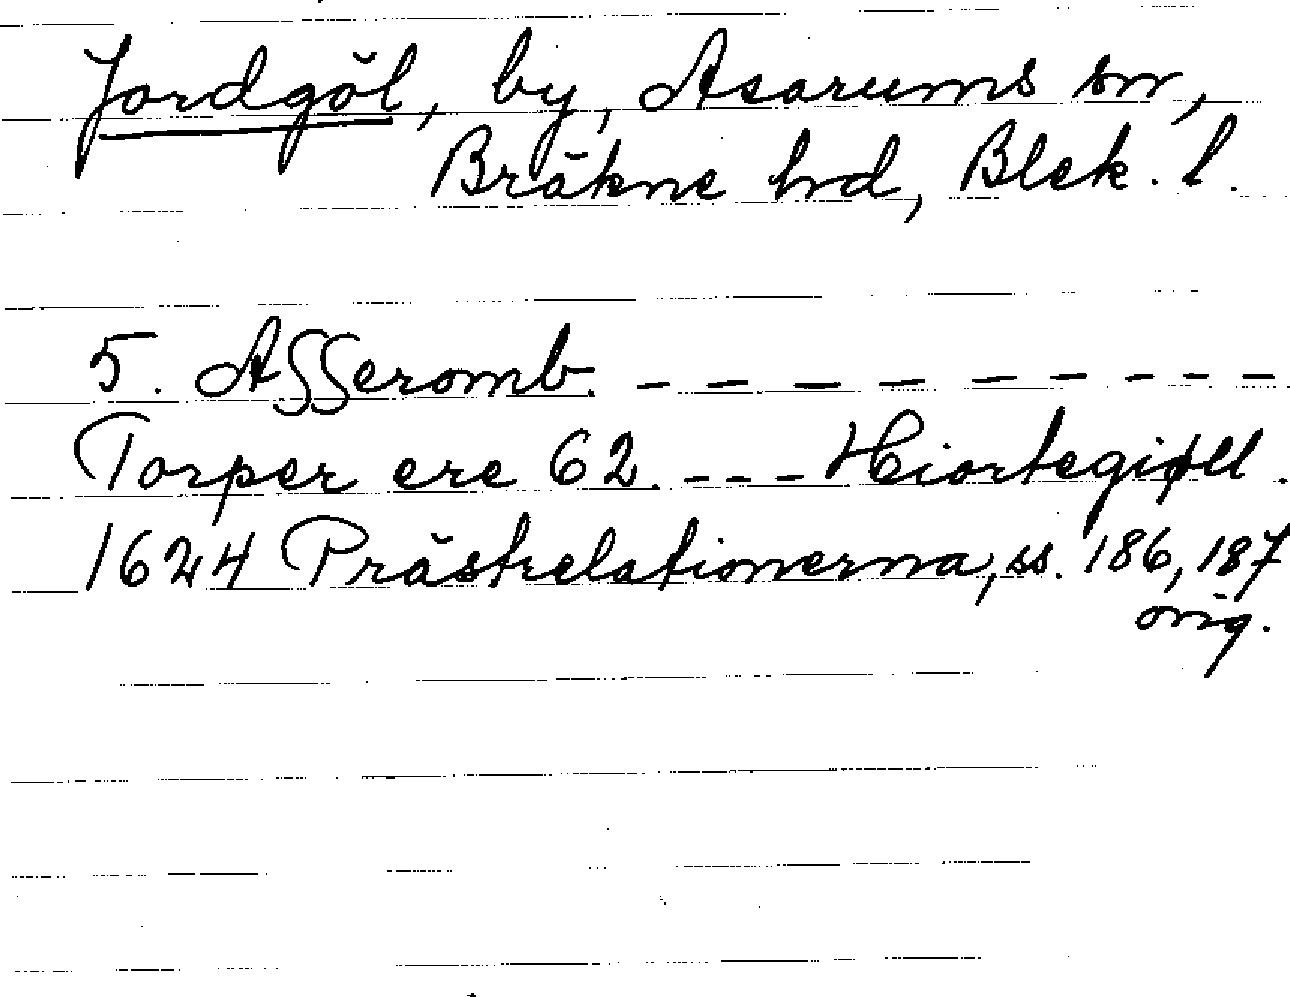 Jordgöl, by, Asarums sn,
Bräkne hrd, Blek. l.
5. Asseromb. - - - - - - - - -
Torper ere 62. - - - Hiortegiøll.
1624 Prästrelationerna, ss. 186, 187
orig.